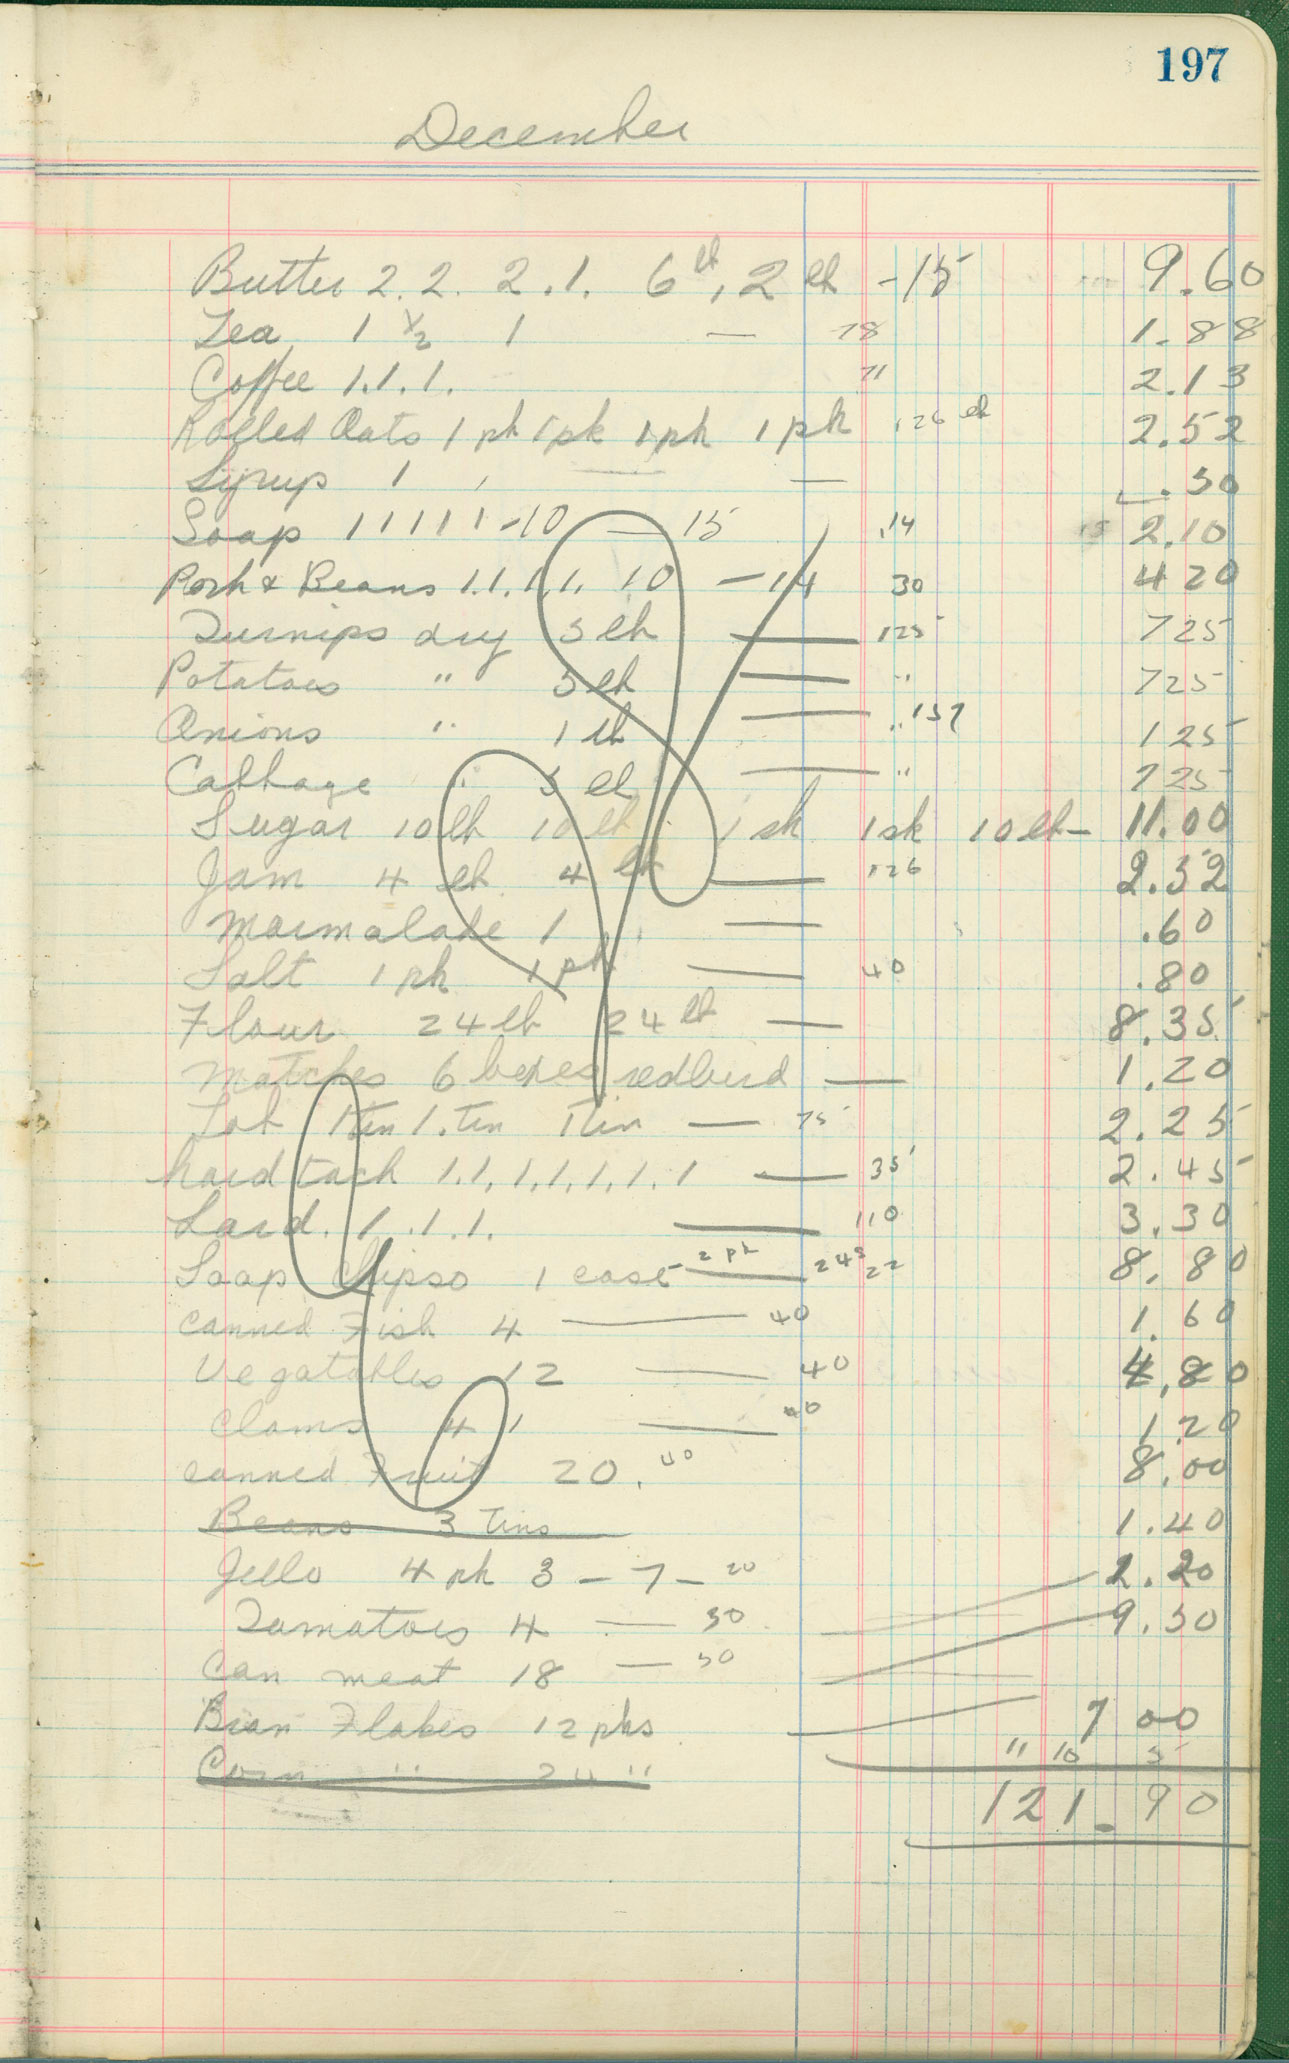 197
December
Butter 2. 2. 2. 1. 6 lb, 2 lb - 15 9.60
Tea 1 1/2 1 — 78 1.88
Coffee 1.1.1. 71 2.13
Rolled Oats 1 pk 1 pk 1 pk 1 pk 126 2.52
Syrup 1 — .50
Soap 1 1 1 1 1 - 10 — 15 .14 2.10
Pork & Beans 1.1.1.1. 10 — 14 30 4 20
Turnips dry 5 lb — 125 7 25
Potatoes " 5 lb — " 7 25
Onions " 1 lb — 1 25
Cabbage " 5 lb — " 7 25
Sugar 10 lb 10 lb 1 sk 1 sk 10 lb - 11.00
Jam 4 lb 4 lb — 126 2.52
Marmalade 1 — .60
Salt 1 pk 1 pk — 40 .80
Flour 24 lb 24 lb — 8.35
Matches 6 boxes redbird — 1.20
1 tin 1. tin 1 tin — 75 2.25
hard tack 1.1.1.1.1.1.1 — 35 2.45
Lard. 1.1.1. — 110 3.30
Soap Chipso 1 case — 2 pk 24s 22 8.80
Canned Fish 4 — 40 1.60
Vegatables 12 — 40 4.80
Clams 4 1 — 40 1.20
Canned Fruit 20. 40 8.00
Beans 3 tins 1.40
Jello 4 pk 3 - 7 - 20 2.20
Tamatoes 4 — 50 9.50
Can meat 18 — 50
Bran Flakes 12 pks 7 00
Corn " "
" 10 5
121.90